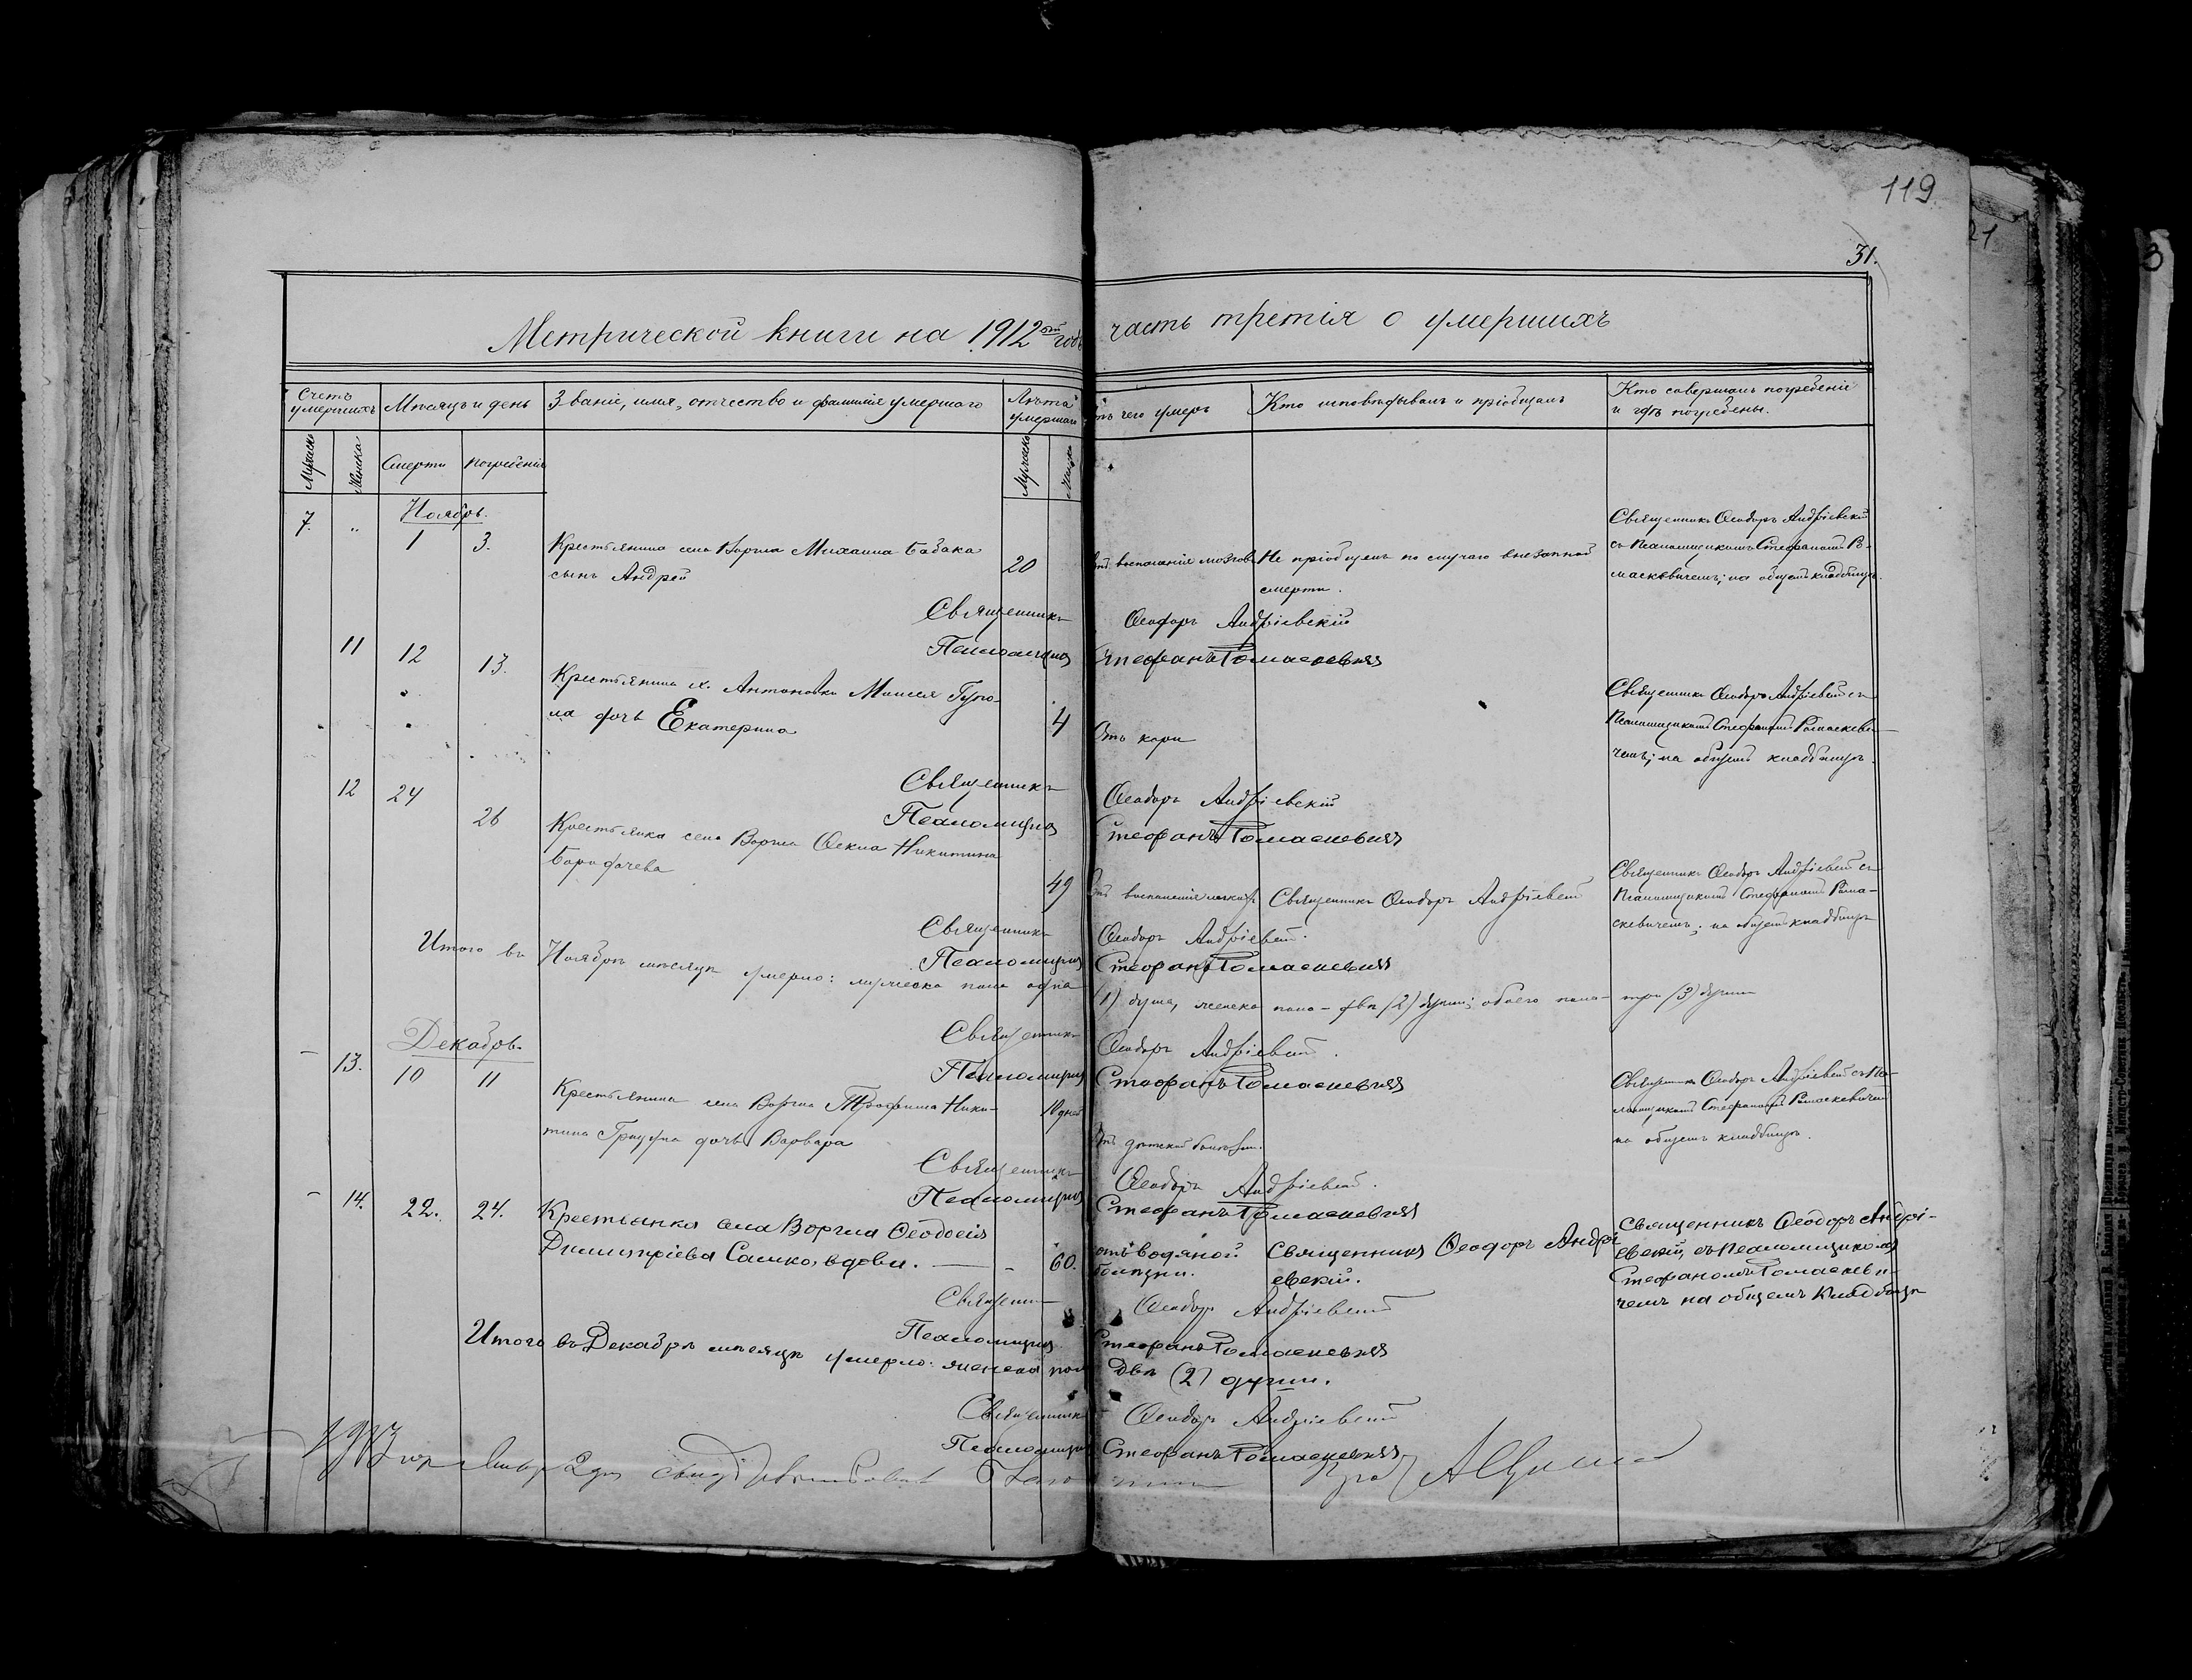 119
31.
Метрической книги на 1912ый годъ часть третія о умершихъ
Счетъ умершихъ
Мѣсяцъ и день
Званіе, имя, отчество и фамилія умершаго
Лѣта умершаго
Отъ чего умеръ
Кто исповѣдывалъ и пріобщалъ
Кто совершалъ погребеніе
и гдѣ погребены.
Мужска
Женска
Смерти
Погребенія
Мужска
Женска
Ноябрь.
7. „ 1 3.
Крестьянина села Воргла Михаила Бабака
сынъ Андрей
20
воспаленія мозгов
Не пріобщенъ по случаю внезапной
смерти.
Священникъ Ѳеодоръ Андріевскій
съ Псаломщикомъ Стефаномъ Ро-
маскевичемъ; на общемъ кладбищѣ.
Священникъ Ѳеодоръ Андріевскій
Псаломщикъ Стефанъ Ромаскевичъ
11 12 13.
Крестьянина х. Антоновки Моисея
дочь Екатерина
4
Отъ кори
Священникъ Ѳеодоръ Андріевскій съ
Псаломщикомъ Стефаномъ Ромаскеви-
чемъ; на общемъ кладбищѣ.
Священникъ Ѳеодоръ Андріевскій
Псаломщикъ Стефанъ Ромаскевичъ
12 24 26
Крестьянка села Воргла Ѳекла Никитина
49
Отъ воспаленія легкихъ
Священникъ Ѳеодоръ Андріевскій
Священникъ Ѳеодоръ Андріевскій съ
Псаломщикомъ Стефаномъ Рома-
скевичемъ; на общемъ кладбищѣ
Священникъ Ѳеодоръ Андріевскій.
Псаломщикъ Стефанъ Ромаскевичъ
Итого въ Ноябрѣ мѣсяцѣ умерло: мужеска пола одна (1) душа, женска пола – двѣ (2) души; обоего пола – три (3) души
Священникъ Ѳеодоръ Андріевскій.
Псаломщикъ Стефанъ Ромаскевичъ
Декабрь.
– 13. 10 11
Крестьянина села Воргла Трофима Ники-
тина дочь Варвара
10 дней
Отъ дѣтской болѣзни.
Священникъ Ѳеодоръ Андріевскій съ Пса-
ломщикомъ Стефаномъ Ромаскевичемъ
на общемъ кладбищѣ.
Священникъ Ѳеодоръ Андріевскій.
Псаломщикъ Стефанъ Ромаскевичъ
– 14. 22. 24.
Крестьянка села Воргла Ѳеодосія
Димитріева Сашко, вдова. — –
60.
отъ водяной
болѣзни.
Священникъ Ѳеодоръ Андрі-
евскій.
Священникъ Ѳеодоръ Андрі-
евскій, съ Псаломщикомъ
Стефаномъ Ромаскеви-
чемъ на общемъ кладбищѣ
Священникъ Ѳеодоръ Андріевскій
Псаломщикъ Стефанъ Ромаскевичъ
Итого въ Декабрѣ мѣсяцѣ умерло: женска пола двѣ (2) души.
Священникъ Ѳеодоръ Андріевскій
Псаломщикъ Стефанъ Ромаскевичъ